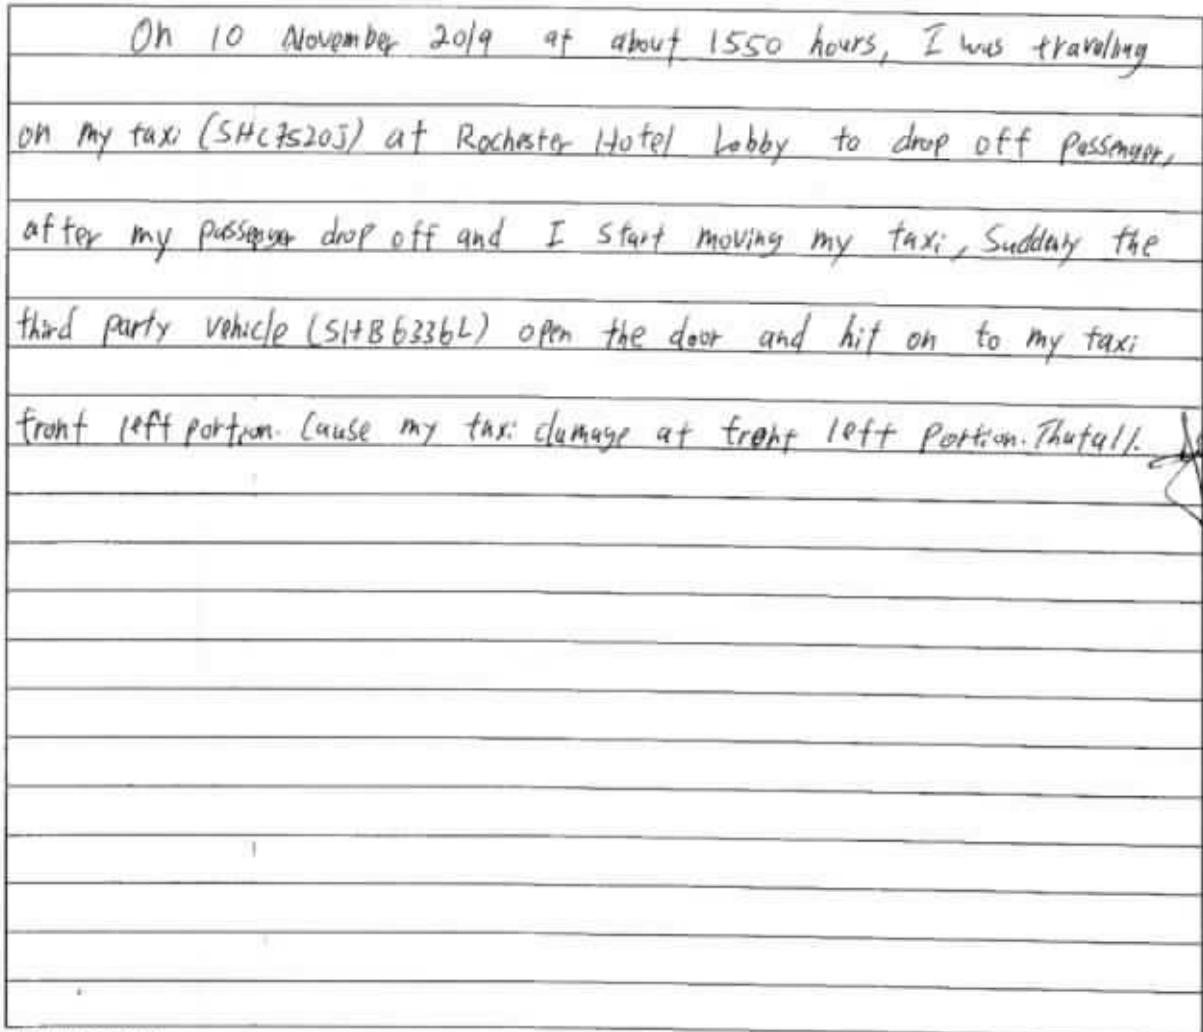 On 10 November 2019 at about 1550 hours, I was traveling
on my taxi (SHC7520J) at Rochester Hotel Lobby to drop off passenger,
after my passenger drop off and I start moving my taxi, Suddenly the
third party vehicle (SHB6336L) open the door and hit on to my taxi
front left portion. Cause my taxi damage at front left portion. That all.